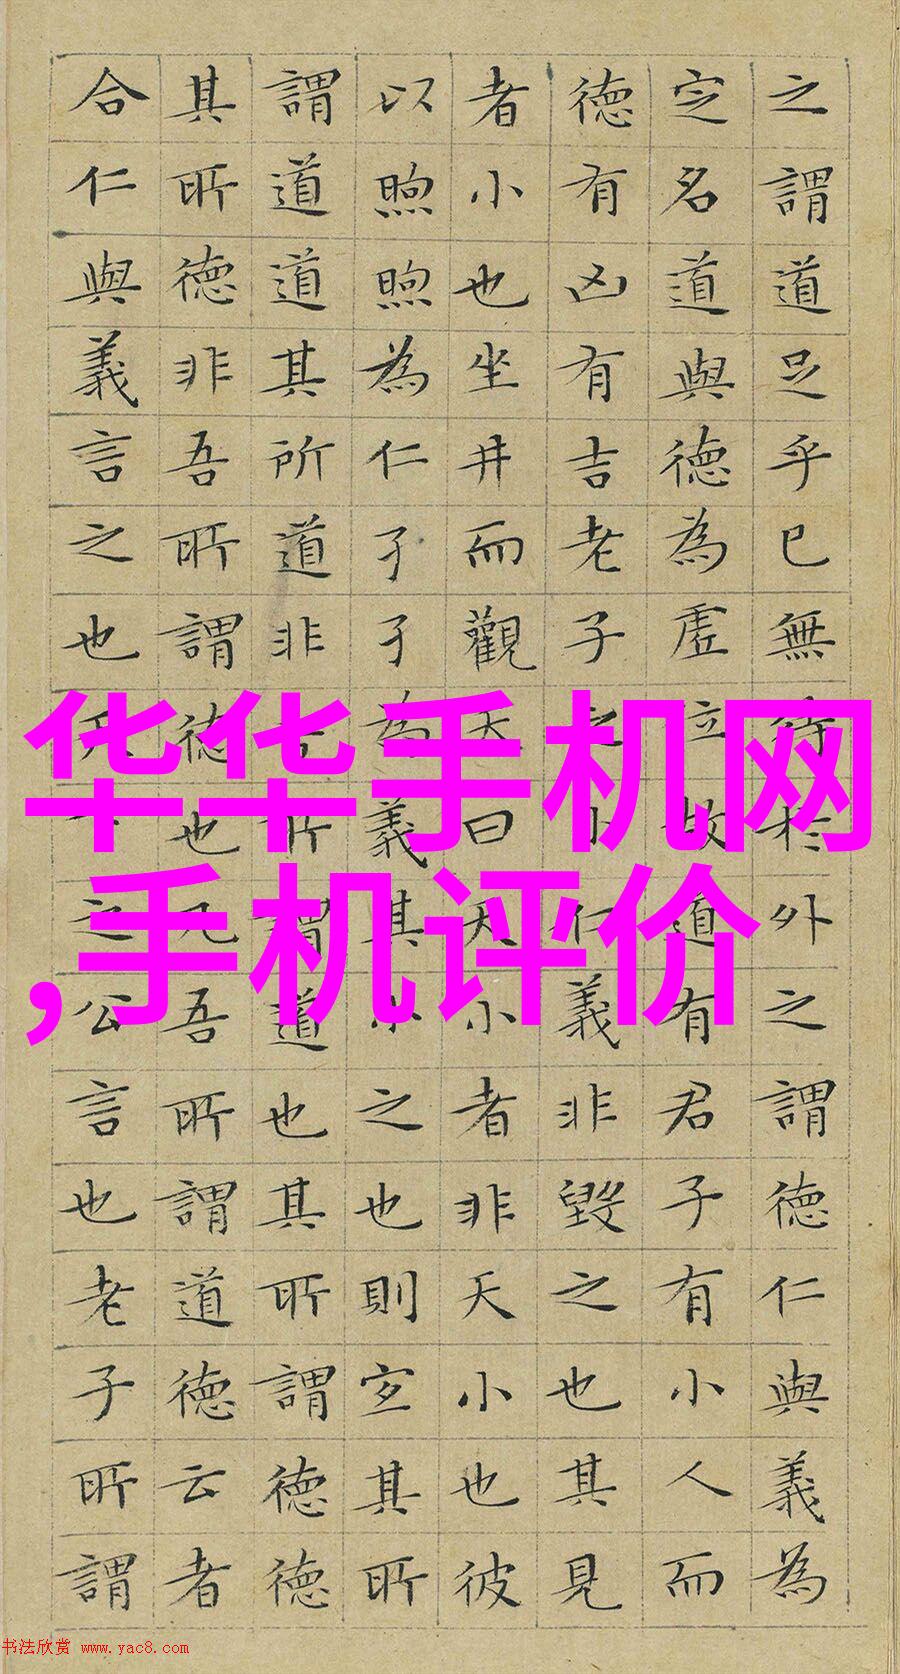 之謂道足乎已無待於外之謂德仁與義為
定名道與德為虛立故道有君子有小人而
德有凶有吉老子之小仁義非毀之也其見
者小也坐井而觀天曰天小者非天小也彼
以煦煦為仁孑孑為義其小之也則宜其所
謂道道其所道非吾所謂道也其所謂德德
其所德非吾所謂德也凡吾所謂道德云者
合仁與義言之也天下之公言也老子所謂
华华手机网
,手机评价
书法欣赏 www.yac8.com